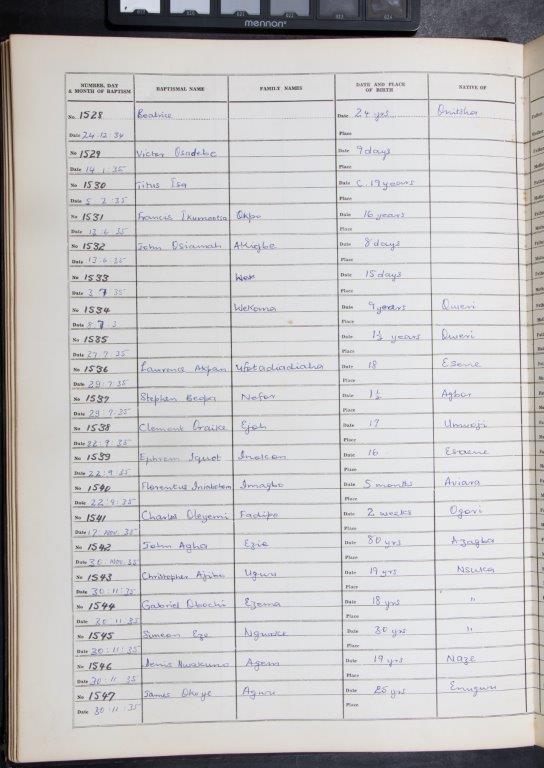 mennon
NUMBER, DAY & MONTH OF BAPTISM BAPTISMAL NAME FAMILY NAMES DATE AND PLACE OF BIRTH NATIVE OF
No 1528 Beatrice Date 24 yrs Onitsha
Date 24.12.34 Place
No 1529 Victor Osadebe Date 9 days
Date 14.1.35 Place
No 1530 Titus Isa Date C. 19 years
Date 5 2 35 Place
No 1531 Francis Okpo Date 16 years
Date 13.6.35 Place
No 1532 John Osiamah Akigbe Date 8 days
Date 13.6.35 Place
No 1533 Date 15 days
Date 3 7 35 Place
No 1534 Wekoma Date 9 years Oweri
Date 8.7.3 Place
No 1535 Date 1½ years Oweri
Date 27.7.35 Place
No 1536 Laurence Akpan Date 18 Esene
Date 29.7.35 Place
No 1537 Stephen Nefor Date 1½ Agbor
Date 29.7.35 Place
No 1538 Clement Oraike Ejoh Date 17
Date 22.9.35 Place
No 1539 Ephrem Date 16
Date 22.9.35 Place
No 1540 Florentius Imagbo Date 5 months Aviara
Date 22.9.35 Place
No 1541 Charles Oleyemi Fadipe Date 2 weeks Ogori
Date 17. Nov. 35 Place
No 1542 John Agha Ezie Date 80 yrs Azagba
Date 30. Nov. 35 Place
No 1543 Christopher Ugwu Date 19 yrs Nsuka
Date 30.11.35 Place
No 1544 Gabriel Obochi Ezema Date 18 yrs "
Date 30 11 35 Place
No 1545 Simeon Eze Date 30 yrs "
Date 30.11.35 Place
No 1546 Denis Nwakuno Agom Date 19 yrs Naze
Date 30.11 35 Place
No 1547 James Okoye Agwu Date 25 yrs Enugwu
Date 30.11.35 Place